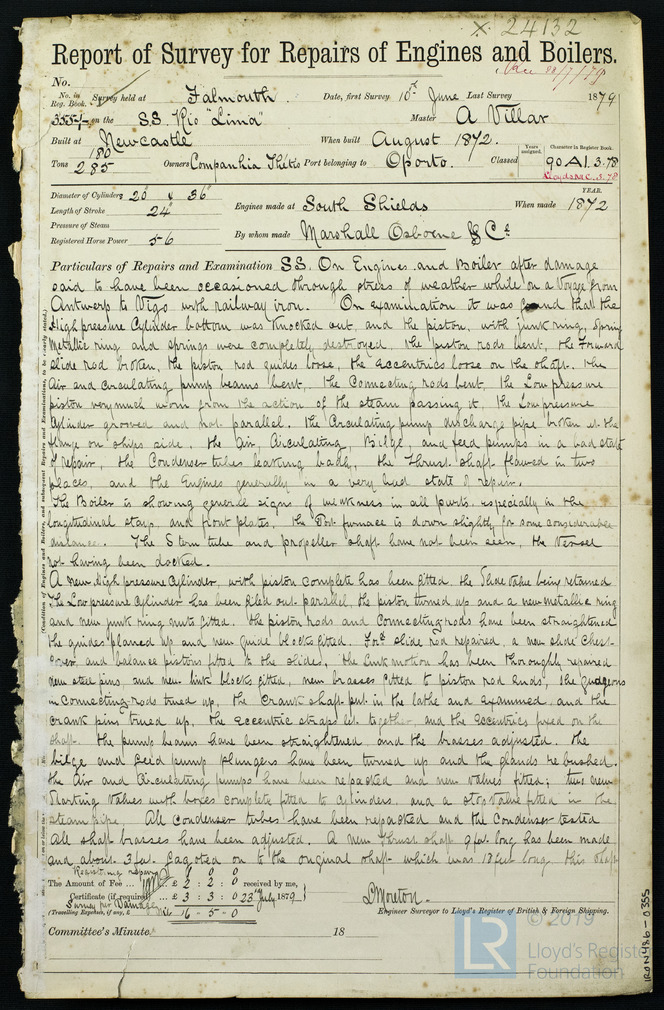 X. 24132
Report of Survey for Repairs of Engines and Boilers.
No.
No. in Reg. Book. Survey held at Falmouth. Date, first Survey 10th June Last Survey 1879
on the S.S. Rio "Lima" Master A Villar
Built at Newcastle When built August 1872.
Tons 180 285 Owners Companhia Thetis Port belonging to Oporto. Classed Years assigned. Character in Register Book. 90 A1. 3.78
Lloyds M.C. 3.78
Diameter of Cylinders 20" & 36"
Length of Stroke 24"
Pressure of Steam
Registered Horse Power 56
Engines made at South Shields When made YEAR. 1872
By whom made Marshall Osborne & Co.
Particulars of Repairs and Examination SS. On Engines and Boiler after damage
said to have been occasioned through stress of weather while on a Voyage from
Antwerp to Vigo with railway iron. On examination it was found that the
High pressure Cylinder bottom was knocked out, and the piston, with junk ring, spring
Metallic ring and springs were completely destroyed, the piston rods bent, the Forward
slide rod broken, the piston rod guides loose, the eccentrics loose on the shaft, the
Air and circulating pump beams bent, the Connecting rods bent, the Low pressure
piston very much worn from the action of the steam passing it, the Low pressure
Cylinder grooved and not parallel. The Circulating pump discharge pipe broken at the
flange on ships side, the Air, Circulating, Bilge, and feed pumps in a bad state
of repair, the Condenser tubes leaking badly, the Thrust shaft flawed in two
places, and the Engines generally in a very bad state of repair.
The Boiler is showing general signs of weakness in all parts, especially in the
longitudinal stays, and front plates, the Port furnace is down slightly for some considerable
distance. The Stern tube and propeller shaft have not been seen, the Vessel
not having been docked.
A new High pressure Cylinder, with piston complete has been fitted, the Slide Valve being retained
The Low pressure Cylinder has been filed out parallel, the piston turned up and a new metallic ring
and new junk ring nuts fitted. the piston rods and Connecting rods have been straightened
the guides planed up and new guide blocks fitted. Ford slide rod repaired, a new slide Chest
cover, and balance pistons fitted to the slides, the link motion has been throughly repaired
new steel pins, and new link blocks fitted, new brasses fitted to piston rod ends, the gudgeons
in Connecting rods turned up, the Crank shaft put in the lathe and examined and the
crank pins turned up, the eccentric straps let together, and the eccentrics fixed on the
shaft. the pump beams have been straightened and the brasses adjusted. the
bilge and feed pump plungers have been turned up and the glands re bushed.
the Air and Circulating pumps have been repacked and new Valves fitted; two new
Starting Valves with boxes complete fitted to Cylinders, and a stop Valve fitted in the
steam pipe. All Condenser tubes have been repacked and the Condenser tested
All shaft brasses have been adjusted. A new Thrust shaft 9 feet long has been made
and about 3 feet fagoted on to the original shaft which was 12 feet long. this shaft
The Amount of Fee ... £ 2 : 2 : 0 received by me,
Certificate (if required) ... £ 3 : 3 : 0 23rd July 1879
Survey per Damage
(Travelling Expenses, if any, £
16 - 5 - 0
Engineer Surveyor to Lloyd's Register of British & Foreign Shipping.
Committee's Minute 18
© 2019
LR Lloyd's Register
Foundation
IRON486-0355